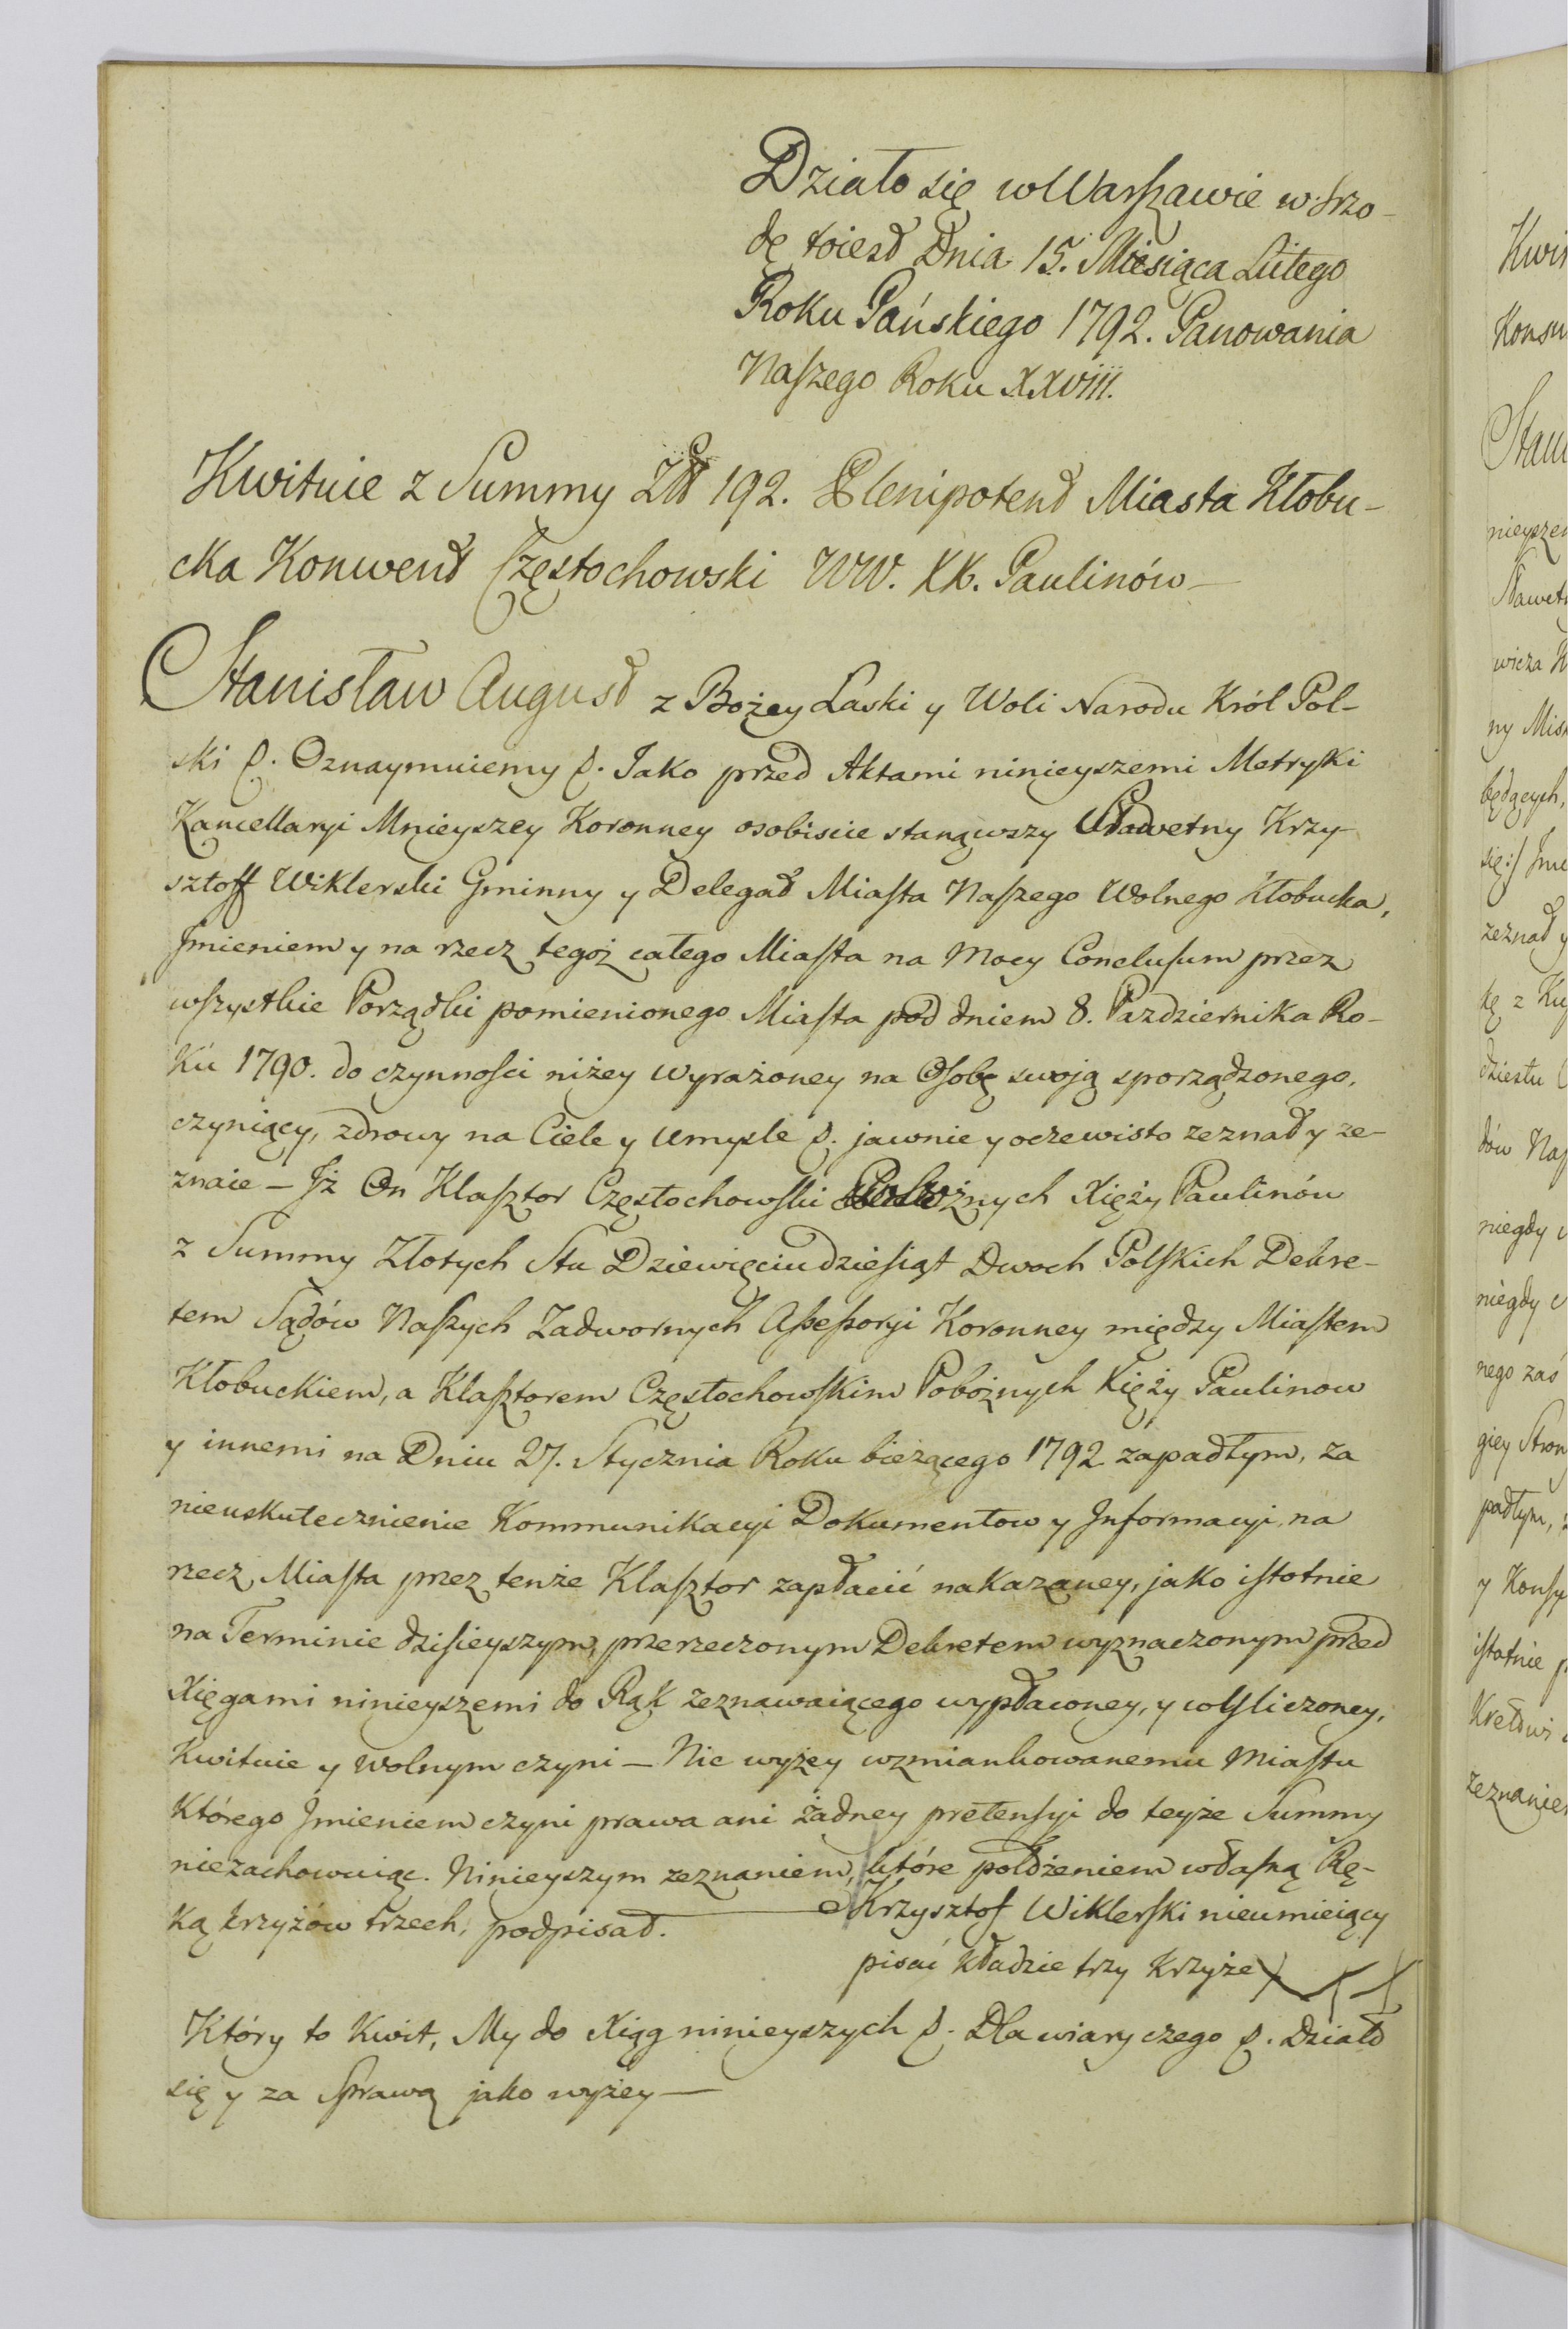 Działo się w Warszawie w Srzo-
dę toiest Dnia 15. Miesiąca Lutego
Roku Pańskiego 1792. Panowania
Naszego Roku XXVIII.
Kwituie z Summy Złł 192. Plenipotent Miasta Kłobu-
cka Konwent Częstochowski WW. XX. Paulinów —
Stanisław August z Bożey Łaski y Woli Narodu Król Pol-
ski &. Oznaymuiemy &. Jako przed Aktami ninieyszemi Metryki
Kancellaryi Mnieyszey Koronney osobiscie stanąwszy Sławetny Krzy-
sztoff Wiklerski Gminny y Delegat Miasta Naszego Wolnego Kłobucka,
Jmieniem y na rzecz tegoż całego Miasta na Mocy Conclusum przez
wszystkie Porządki pomienionego Miasta pod dniem 8. Pazdziernika Ro-
ku 1790. do czynnosci niżey wyrażoney na Osobę swoją sporządzonego,
czyniący, zdrowy na Ciele y Umysle &. jawnie y oczewisto zeznał y ze-
znaie — Jż On Klasztor Częstochowski Pobożnych Xięży Paulinów
z Summy Złotych Sta Dziewięciudziesiąt Dwoch Polskich Dekre-
tem Sądów Naszych Zadwornych Assessoryi Koronney między Miastem
Kłobuckiem, a Klasztorem Częstochowskim Pobożnych Xięży Paulinow
y innemi na Dniu 27. Stycznia Roku bieżącego 1792 zapadłym, za
nieuskutecznienie Kommunikacyi Dokumentow y Jnformacyi, na
rzecz Miasta przez tenże Klasztor zapłacić nakazaney, jako istotnie
na Terminie dzisieyszym, przerzeczonym Dekretem wyznaczonym przed
Xięgami ninieyszemi do Rąk zeznawaiącego wypłaconey, y wyliczoney,
Kwituie y wolnym czyni — Nic wyżey wzmiankowanemu Miastu
Którego Jmieniem czyni prawa ani żadney pretensyi do teyże Summy
niezachowuiąc. Ninieyszym zeznaniem, które położeniem własną Rę-
ką krzyżów trzech, podpisał. — Krzysztof Wiklerski nieumieiący
pisać kładzie trzy Krzyże
Który to Kwit, My do Xiąg ninieyszych &. Dla wiary czego &. Działo
się y za Sprawą jako wyżey —